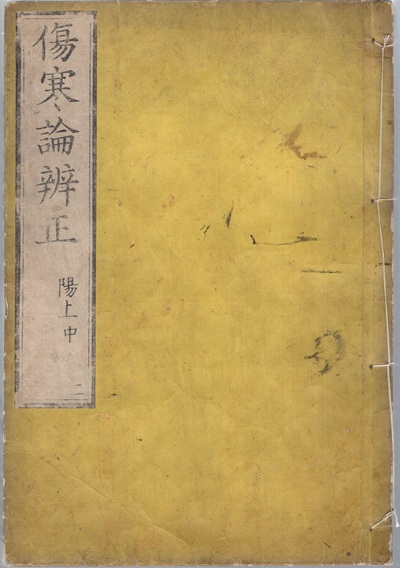 傷寒論辨正
陽上中
二